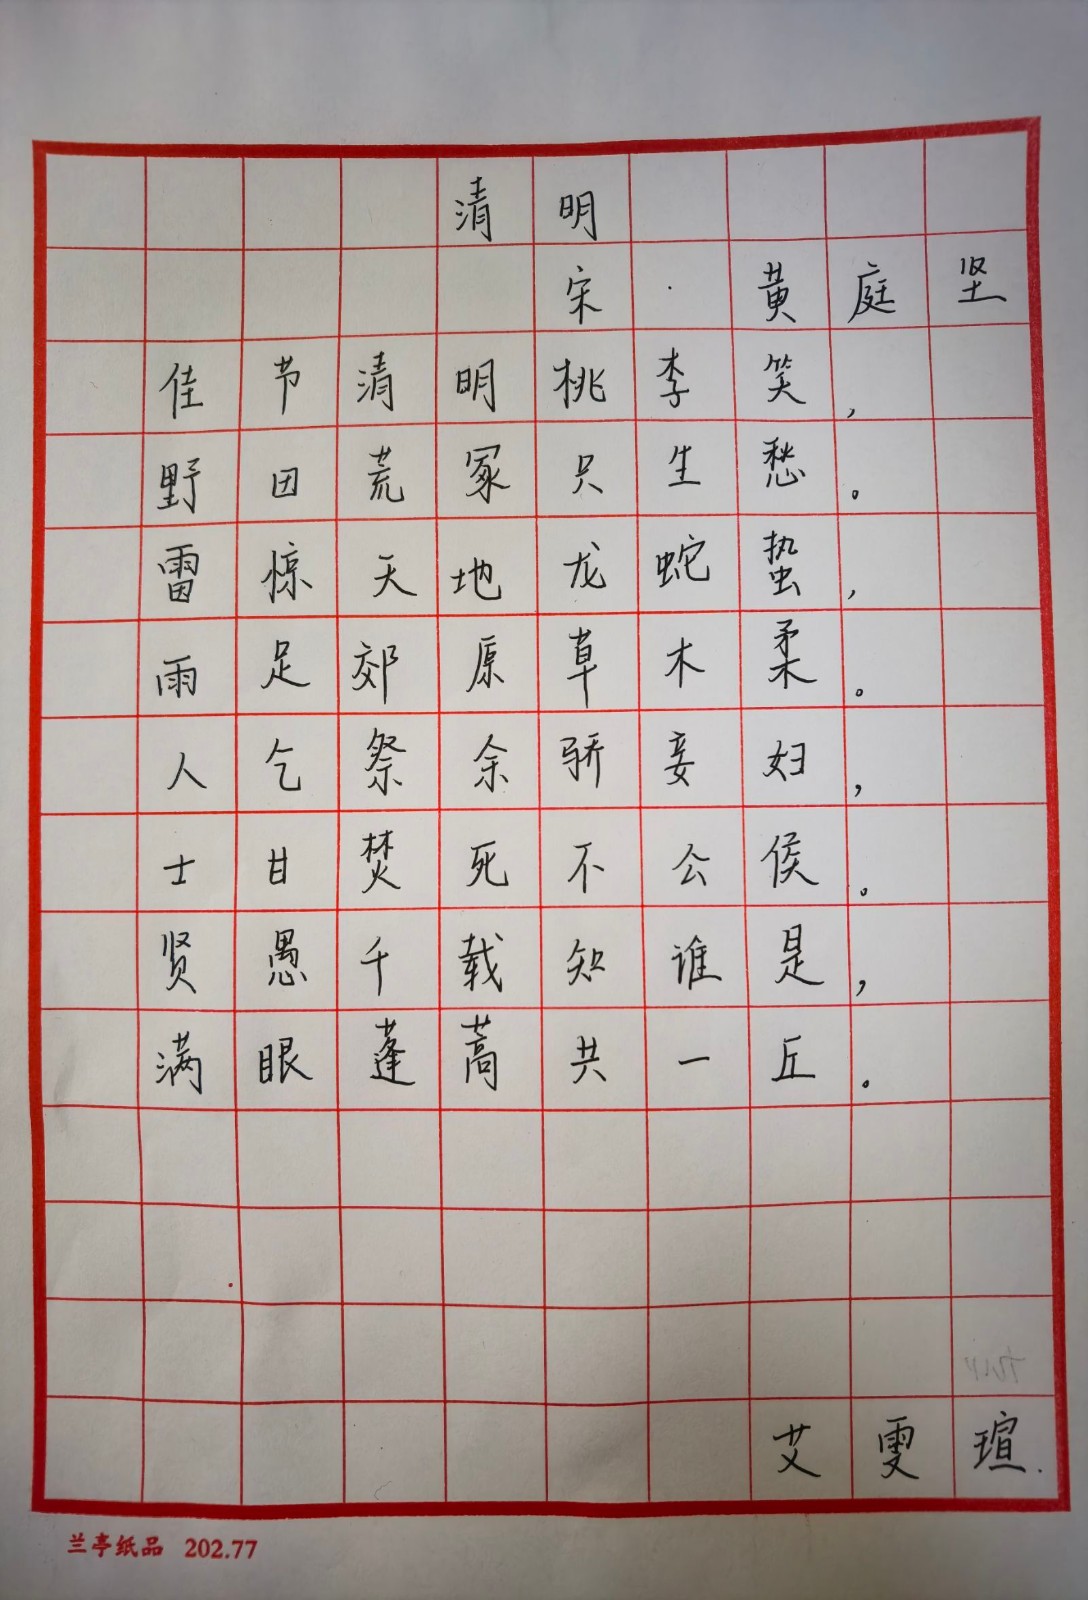 清明
宋·黄庭坚
佳节清明桃李笑，
野田荒冢只生愁。
雷惊天地龙蛇蛰，
雨足郊原草木柔。
人乞祭余骄妾妇，
士甘焚死不公侯。
贤愚千载知谁是，
满眼蓬蒿共一丘。
艾雯瑄.
兰亭纸品 202.77